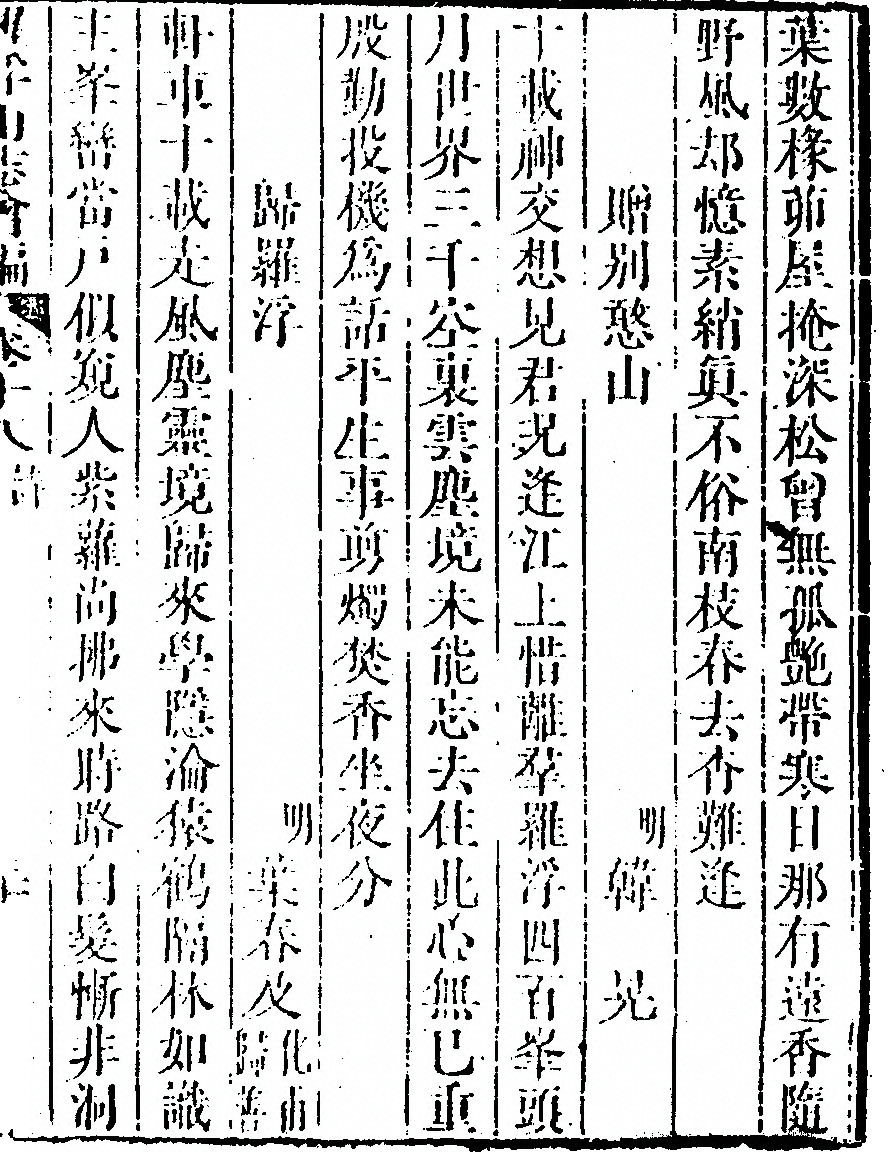 葉數椽茆屋掩深松曾無孤艷帶寒日那有遠香隨
野風却憶素綃眞不俗南枝春去杳難逢
贈别憨山 明韓晃
十載神交想見君况逢江上惜離羣羅浮四百峯頭
月世界三千空裏雲塵境未能忘去住此心無已重
殷勤投機爲話平生事剪燭焚香坐夜分
歸羅浮 明葉春及 化甫歸善
軒車十載走風塵靈境歸來學隱淪猿鶴隔林如識
主峯巒當戶似窺人紫蘿尚拂來時路白髮慚非洞
浮山志會編 卷十八 詩